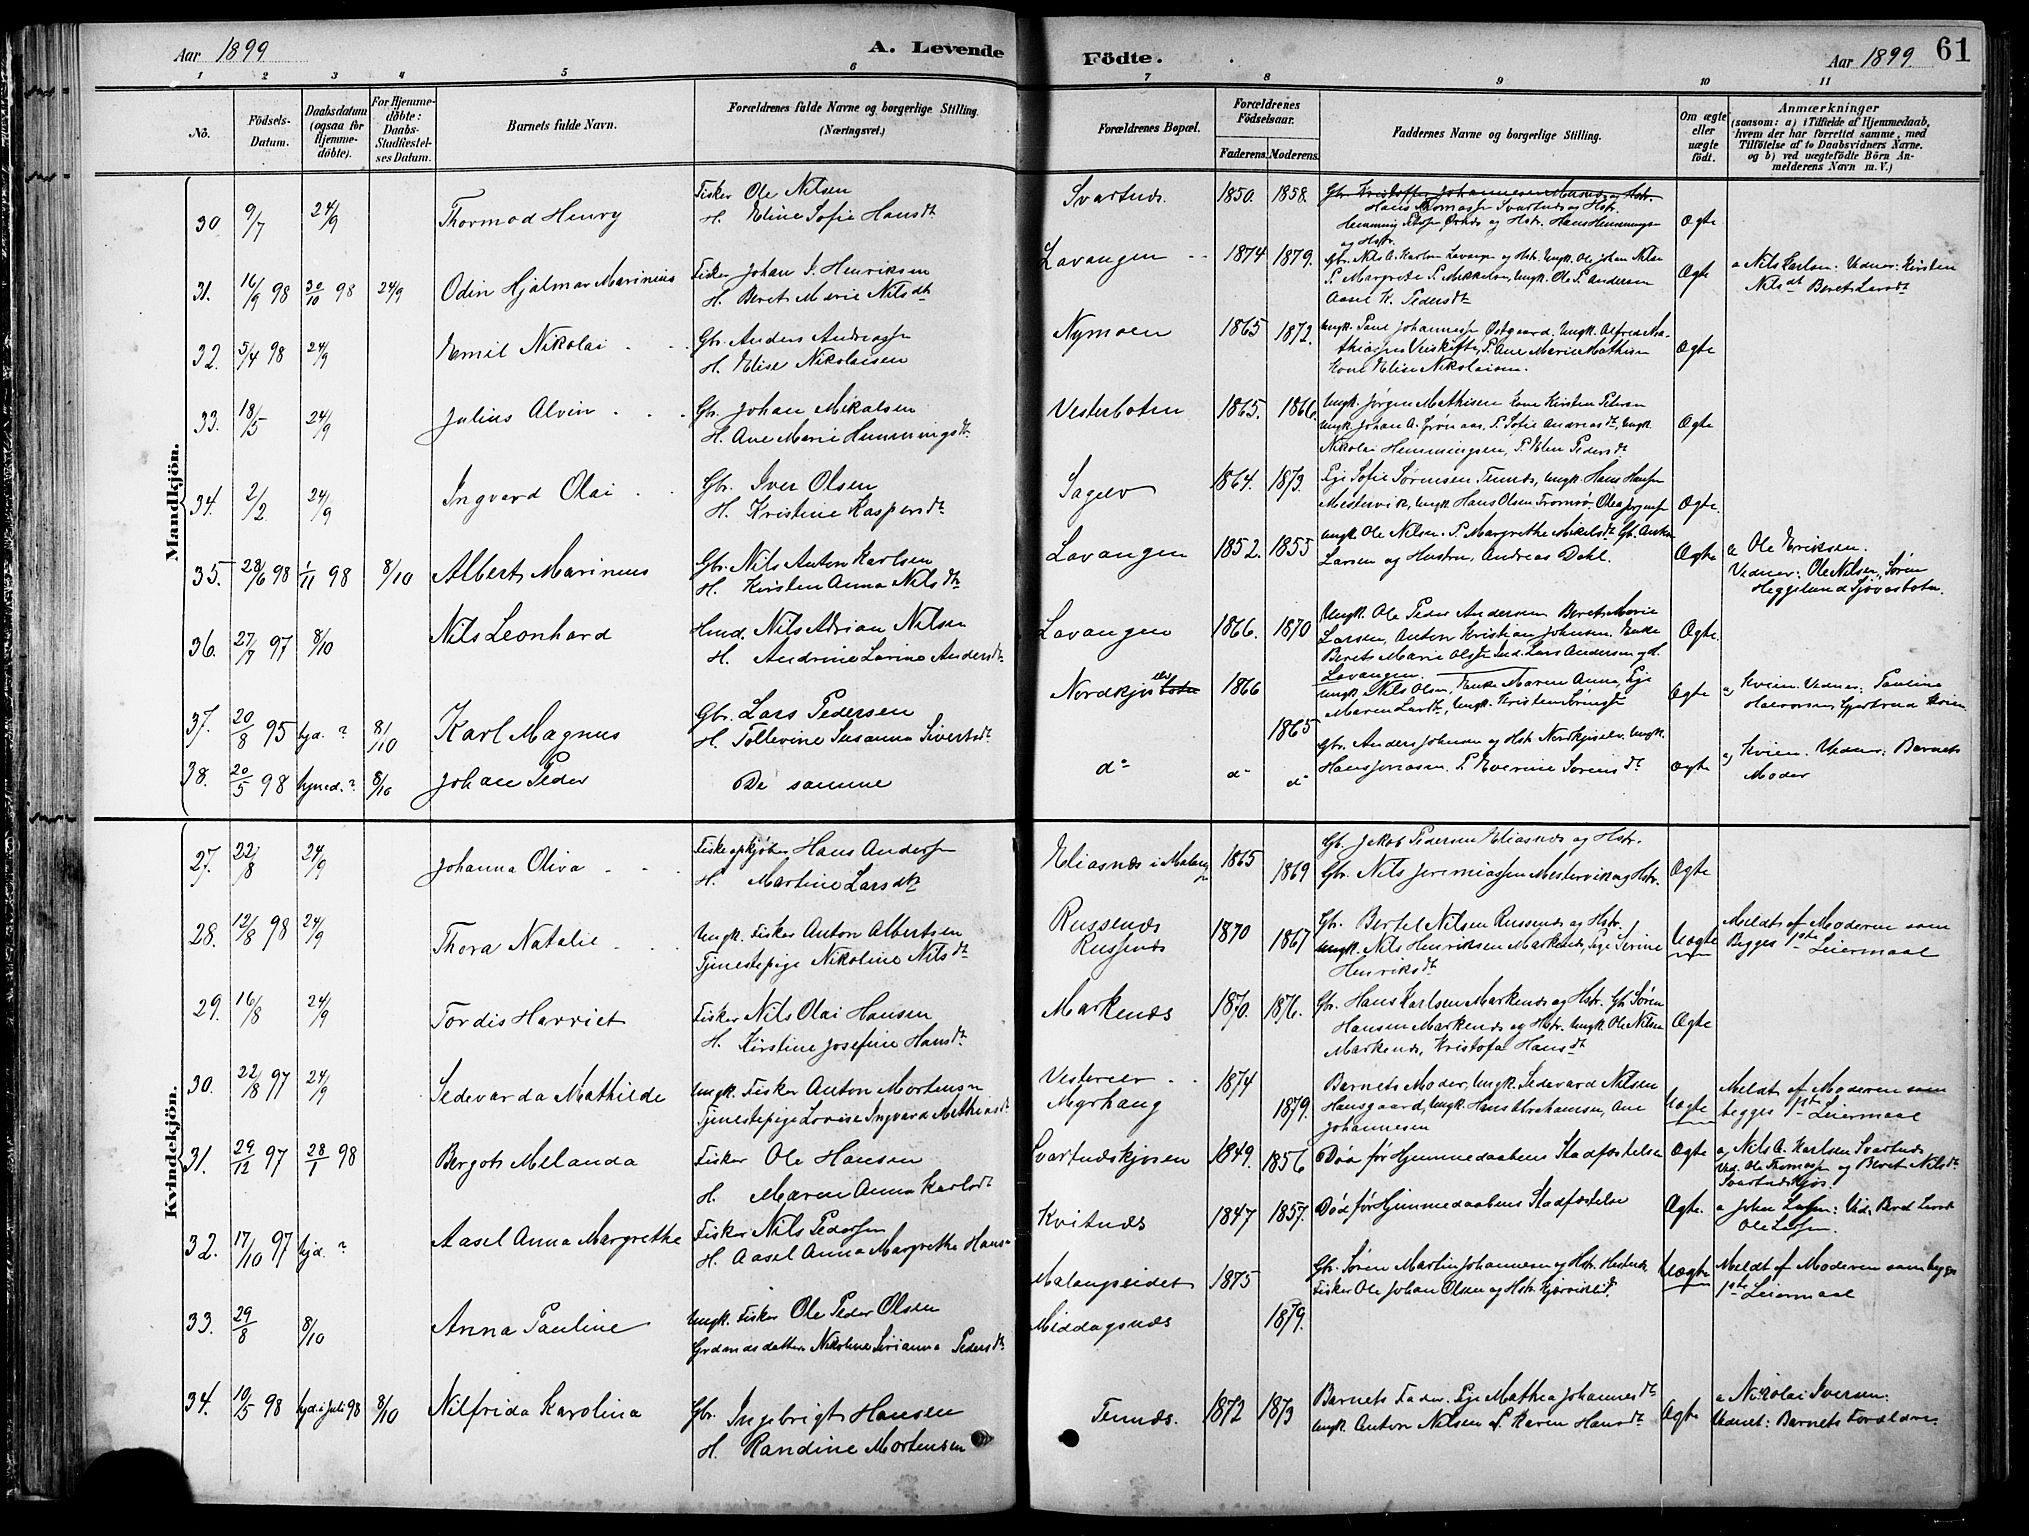 Aar 1899
A. Levende
Födte.
Aar 1899.
61
1 2 3 4 5 6 7 8 9 10 11
No.
Födsels-Datum.
Daabsdatum (ogsaa for Hjemme-döbte).
For Hjemme-döbte: Daabs-Stadfæstel-ses Datum.
Barnets fulde Navn.
Forældrenes fulde Navne og borgerlige Stilling.
(Næringsvei.)
Forældrenes Bopæl.
Forældrenes Födselsaar.
Faderens. Moderens.
Faddernes Navne og borgerlige Stilling.
Om ægte eller uægte födt.
Anmærkninger
(saasom: a) i Tilfælde af Hjemmedaab,
hvem der har forrettet samme, med
Tilföielse af to Daabsvidners Navne.
og b) ved uægtefödte Börn An-
melderens Navn m. V.)
Mandkjön.
30. 9/7 24/9 Thormod Henry
Fisker Ole Nilsen
H. Eline Sofie Hansdt
Svartnæs. 1850. 1858.
Hans Thomassen Svartnæs og Hstr.
og Hstr.
Ægte
31. 16/9 98 30/10 98 24/9 Odin Hjalmar Marinius
Fisker Johan I. Henriksen
H. Beret Marie Nilsdt
Lavangen 1874 1879.
Gbr. Nils A. Karlsen Lavangen og Hstr. Ungk. Ole Johan Nilsen
P. Margrete P. Mikkelsen, Ungk. Ole P. Andersen
Aasel K. Pedersdt
Ægte
a Nils Karlsen: Vidner: Kirsten
Nilsdt Beret Larsdt
32. 5/4 98 24/9 Emil Nikolai
Gbr. Anders Andreassen
H. Elise Nikolaisen
Nymoen 1865 1872.
Ungk. Paul Johannessen Østgaard, Ungk. Alfred Ma-
P. Ane Marie Mathisen
Kone Elise Nikolaisen.
Ægte
33. 18/5 24/9 Julius Alvin
Gbr. Johan Mikalsen
H. Ane Marie Hemmingsdt
Vesterbotn 1865. 1866.
Ungk. Jørgen Mathisen Kone Kirsten Petersen
Ungk. Johan A. Grønaas, P. Sofie Andreasdt, Ungk.
Nikolai Hemmingsen, P. Elen Pedersdt
Ægte
34. 2/2 24/9 Ingvard Olai
Gbr. Iver Olsen
H. Kristine Kaspersdt
Sagelv 1864. 1873.
Pige Sofie Sørensen Tennæs, Ungk. Hans Hansen
Mestervik, Ungk. Hans Olsen Tromsø,
Ægte.
35. 28/6 98 1/11 98 8/10 Albert Marinius
Gbr. Nils Anton Karlsen
H. Kirsten Anna Nilsdt
Lavangen 1852. 1855
Ungk. Ole Nilsen. P. Margrethe Mikelsdt Gb. Anton
Larsen og Hustru, Andreas Dahl.
Ægte
a Ole Eriksen.
Vidner: Ole Nilsen, Søren
Heggelund Sjøvasbotn.
36. 27/7 97 8/10 Nils Leonhard
Hmd. Nils Adrian Nilsen
H. Andrine Lovine Andersdt
Lavangen 1866. 1870
Ungk. Ole Peder Andersen Beret Marie
Larsen, Anton Kristian Johnsen, Enke
Beret Marie Olsdt Ind. Lars Andersen
Lavangen.
Ægte.
37. 20/8 95 hjd. ? 8/10 Karl Magnus
Gbr. Lars Pedersen
H. Tollevine Susanna Sivertsdt
Nordkjoselv 1866 1865
Ungk Nils Olsen, Enke Maren Anna, Pige
Maren Larsdt, Ungk.
Ægte
a Kvien. Vidner: Pauline
Halvorsen, Gjertrud Kvien
38. 20/5 98 hjmed. ? 8/10 Johan Peder
De samme
do do do
Gbr. Anders Johnsen og Hstr Nordkjoselv. Ungk.
Hans Jonasen. P. Everine Sørensdt
Ægte
a Kvien. Vidner: Barnets
Moder
Kvindekjön.
27. 22/8 24/9 Johanna Oliva
Fiskeopkjøber Hans Andersen
H. Martine Larsdtr
Eliasnæs i Malang 1865 1869
Gbr. Jakob Pedersen Eliasnæs og Hstr.
Gbr. Nils Jeremiassen Mestervik og Hstr.
Ægte
28. 12/8 98 24/9 Thora Natalie
Ungk. Fisker Anton Albertsen
Tjenestepige Nikoline Nilsdt
Russenæs
Russenæs
1870 1867
Gbr. Bertel Nilsen Russenæs og Hstr.
Ungk. Nils Henriksen Markenæs, Pige Serine
Henriksdt
Uægte
Meldt af Moderen som
Begges 1ste Leiermaal
29. 16/8 24/9 Tordis Harriet
Fisker Nils Olai Hansen
H. Kirstine Josefine Hansdt
Markenæs 1870. 1876.
Gbr. Hans Karlsen Markenæs og Hstr. Gbr Søren
Hansen Markenæs og Hstr. Ungk. Ole Nilsen
Markenæs, Kristofa Hansdt
Ægte
30. 22/8 97 24/9 Sedevarda Mathilde
Ungk. Fisker Anton Mortensen
Tjenestepige Lovise Ingvarda Mathiasdt
Vesterelv
Myrhaug
1874 1879.
Barnets Moder, Ungk. Sedevard Nilsen
Hansgaard, Ungk. Hans Abrahamsen, Ane
Johannesen
Uægte
Meldt af Moderen som
begges 1ste Leiermaal
31. 29/12 97 28/1 98 Bergot Melanda
Fisker Ole Hansen
H. Maren Anna Karlsdt
Svartnæskjosen 1849. 1856
Død før Hjemmedaabens Stadfæstelse
Ægte
a Nils A. Karlsen Svartnæs
Vid. Ole Thomassen og Beret Nilsdt
Svartnæskjos.
32. 17/10 97 hjd. ? Aasel Anna Margrethe
Fisker Nils Pedersen
H. Aasel Anna Margrethe Hans
Kvitnæs 1847 1857.
Død før Hjemmedaabens Stadfæstelse
Ægte.
a Johan Larsen: Vid: Beret Larsdt
Ole Larsen.
33. 29/8 8/10 Anna Pauline
Ungk. Fisker Ole Peder Olsen
Grdmdsdatter Nikoline Serianna Pedersdt
Malangseidet
Middagsnæs
1875 1879.
Gbr. Søren Martin Johannesen og Hstr.
Fisker Ole Johan Olsen og Hstr
Uægte
Meldt af Moderen som begges
1ste Leiermaal
34. 10/5 98 hjd. i Juli 98 8/10 Nilfrida Karolina
Gbr. Ingebrigt Hansen
H. Randine Mortensen
Tennæs. 1872 1873
Barnets Fader. Pige Mathea Johannesdt
Ungk. Anton Nilsen P. Karen Hansdt
Ægte
a Nikolai Iversen.
Vidner: Barnets Forældre.